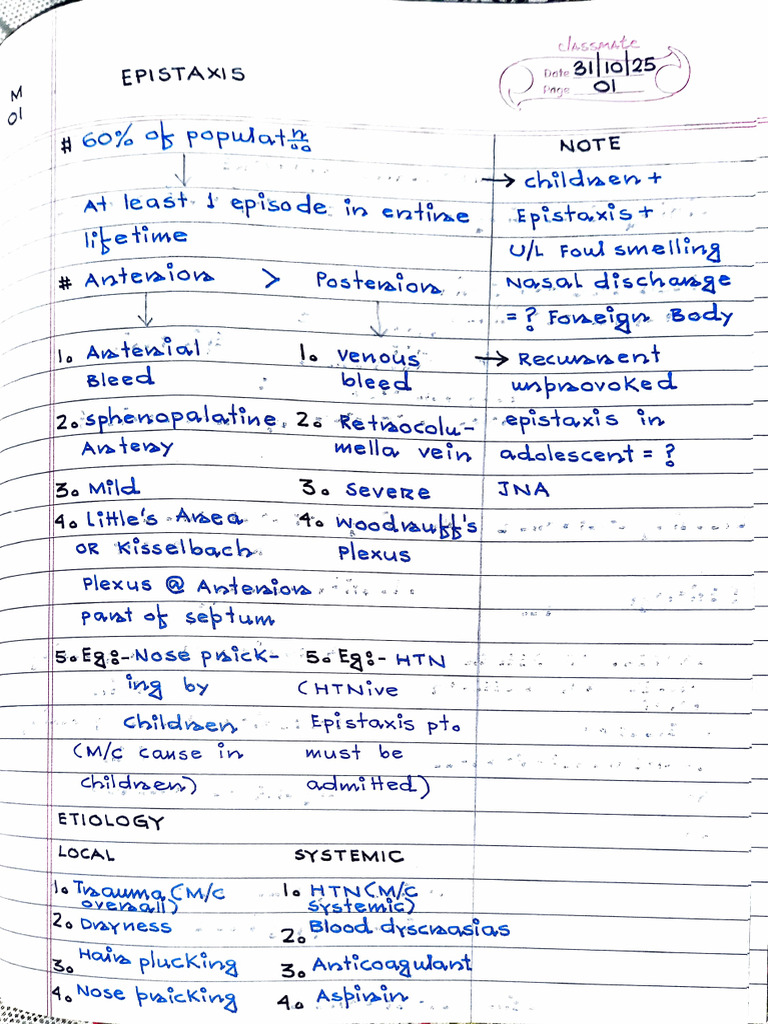 classmate
Date 31/10/25
Page 01
M
01
EPISTAXIS
# 60% of populatn
At least 1 episode in entire
lifetime
# Anterior > Posterior
1. Arterial
Bleed
2. sphenopalatine
Artery
3. Mild
4. Little's Area
OR Kisselbach
Plexus @ Anterior
part of septum
5. Eg:- Nose prick-
ing by
children
(M/c cause in
children)
1. venous
bleed
2. Retrocolu-
mella vein
3. severe
4. Woodruff's
Plexus
5. Eg:- HTN
(HTNive
Epistaxis pt.
must be
admitted)
NOTE
→ children +
Epistaxis +
U/L Foul smelling
Nasal discharge
= ? Foreign Body
→ Recurrent
unprovoked
epistaxis in
adolescent = ?
JNA
ETIOLOGY
LOCAL
1. Trauma (M/c
overall)
2. Dryness
3. Hair plucking
4. Nose pricking
SYSTEMIC
1. HTN (M/c
systemic)
2. Blood dyscrasias
3. Anticoagulant
4. Aspirin